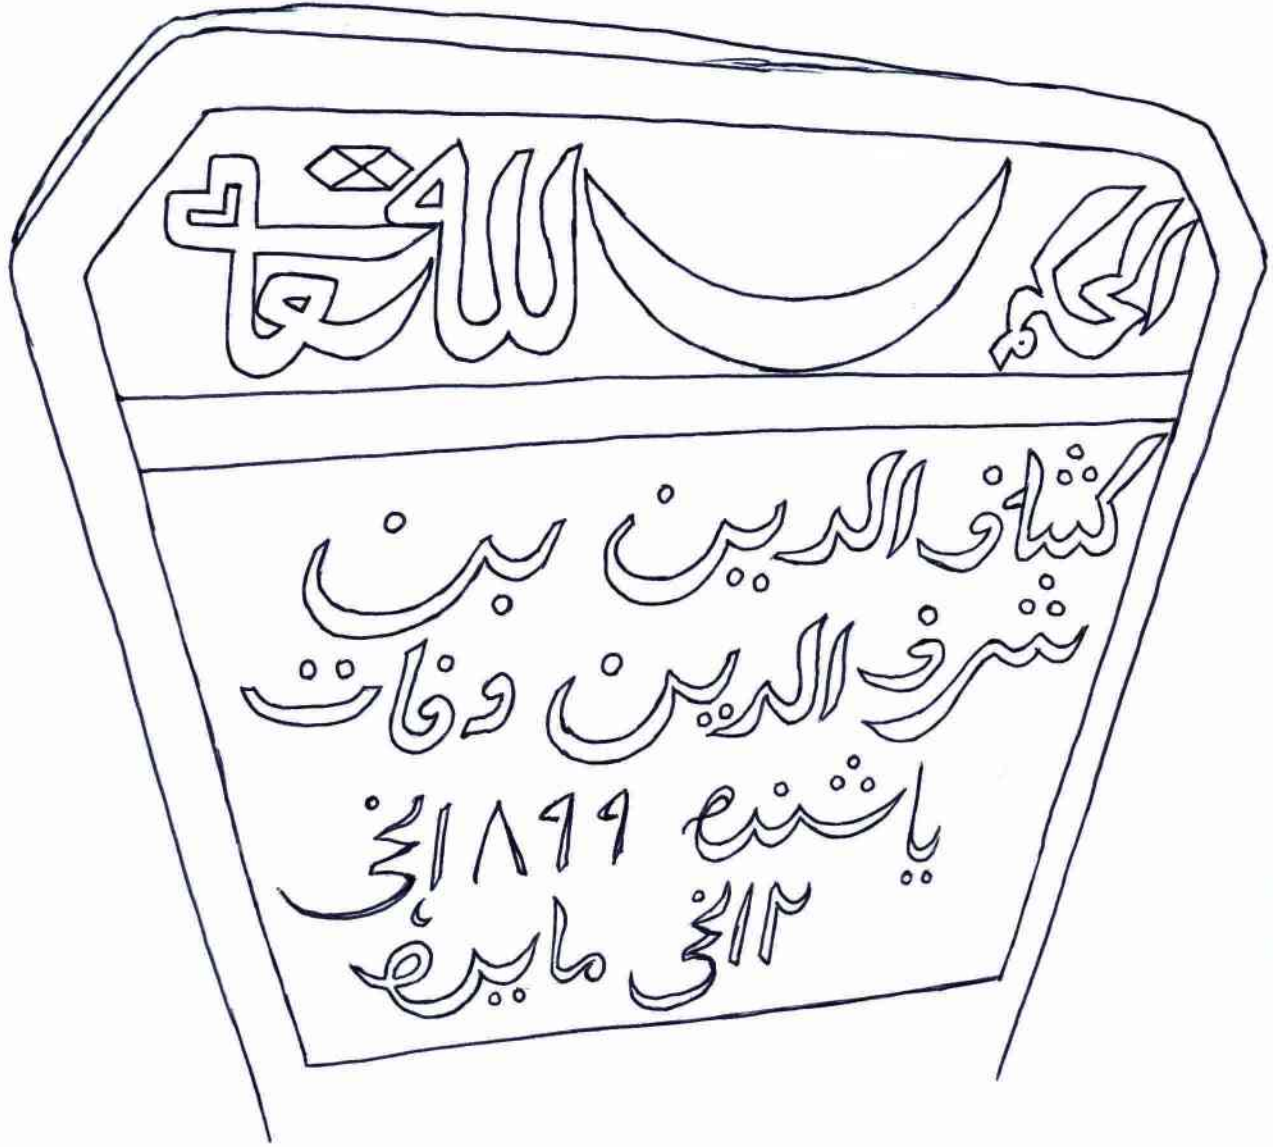 الحكم لله تعالى
كشاف الدين بن
شرف الدين وفات
ياشنده ١٨٩٩ انچی
١٢ انچی مايده